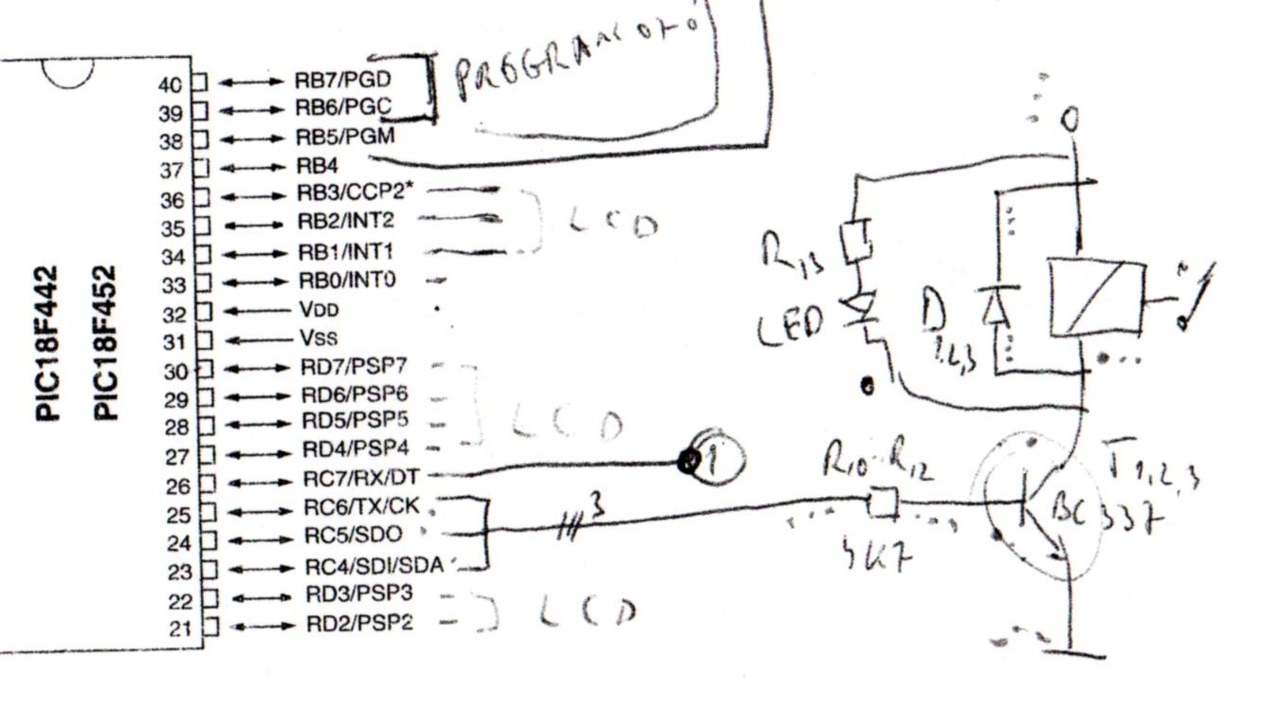 PIC18F442
PIC18F452
40 RB7/PGD
39 RB6/PGC
38 RB5/PGM
37 RB4
36 RB3/CCP2*
35 RB2/INT2
34 RB1/INT1
33 RB0/INT0
32 VDD
31 VSS
30 RD7/PSP7
29 RD6/PSP6
28 RD5/PSP5
27 RD4/PSP4
26 RC7/RX/DT
25 RC6/TX/CK
24 RC5/SDO
23 RC4/SDI/SDA
22 RD3/PSP3
21 RD2/PSP2
LCD
LCD
LCD
1
3
R13
LED
D 1,2,3
R10-R12
4K7
T1,2,3
BC 337